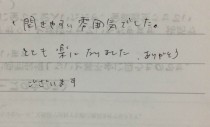 ・聞きやすい雰囲気でした。
とても楽になりました。ありがとう
ございます